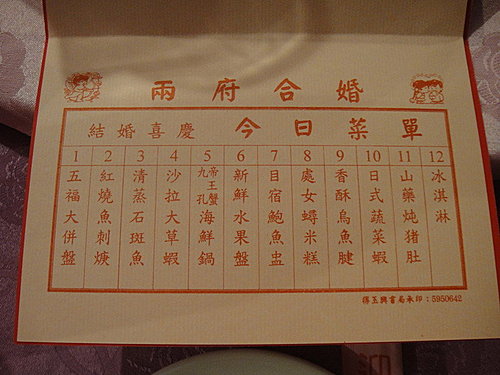 兩府合婚
結婚喜慶 今日菜單
1 2 3 4 5 6 7 8 9 10 11 12
五福大併盤
紅燒魚刺羹
清蒸石斑魚
沙拉大草蝦
帝王蟹九孔海鮮鍋
新鮮水果盤
目宿鮑魚盅
處女蟳米糕
香酥烏魚腱
日式蔬菜蝦
山藥炖猪肚
冰淇淋
得玉興書局承印：5950642